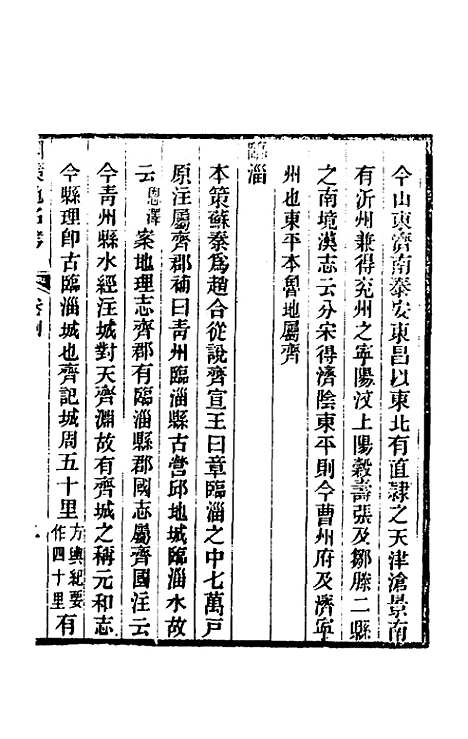 今山東濟南泰安東昌以東北有直隸之天津滄景南
有沂州兼得兗州之寧陽汶上陽穀壽張及鄒滕二縣
之南境漢志云分宋得濟陰東平則今曹州府及濟寧
州也東平本魯地屬齊
臨淄
本策蘇秦爲趙合從說齊宣王曰章臨淄之中七萬戸
原注屬齊郡補曰靑州臨淄縣古營邱地城臨淄水故
云恩澤案地理志齊郡有臨淄縣郡國志屬齊國注云
今靑州縣水經注城對天齊淵故有齊城之稱元和志
今縣理卽古臨淄城也齊記城周五十里方輿紀要作四十里有